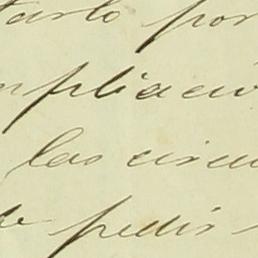 tarlo por
mpliació
las circu
de pedir